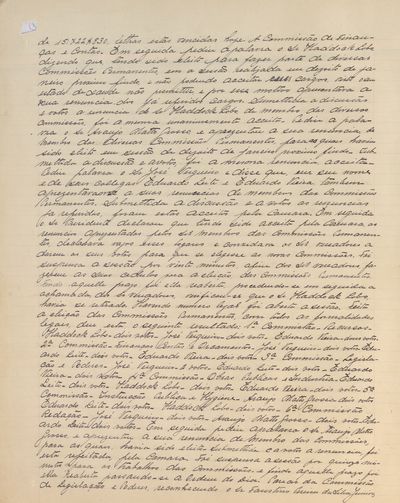 de 15:722$830, letras estas vencidas hoje. A Commissão de Finan-
ças e Contas. Em seguida pediu a palavra o Sr Haddock Lobo
dizendo que tendo sido eleito para fazer parte de diversas
Commissões Permanentes, em a sessão realizada em dezoito de ja-
neiro proximo findo e não podendo acceitar esses cargos, visto o seu
estado de saude não permittir e por esse motivo apresentava a
sua renuncia dos já referidos cargos. Submettida a discussão
e votos a renuncia do Sr Haddock Lobo de membro das diversas
Commissões, foi a mesma unanimemente acceita. Pediu a pala-
vra o Sr Araujo Matto Grosso e apresentou a sua renuncia de
membro das diversas Commissões Permanentes, para as quaes havia
sido eleito em sessão de dezoito de janeiro proximo findo. Sub-
mettida a discussão e a votos, foi a mesma renuncia acceita.
Pediu palavra o Sr José Vergueiro e disse que, em seu nome
e de seus collegas Eduardo Leite e Eduardo Vieira, tambem
apresentava as suas renuncias de membros das Commissões
Permanentes. Submettida a discussão e a votos as renuncias
já referidas, foram estas acceitas pela Camara. Em seguida
o Sr Presidente declarou que tendo sido acceita pela Camara as
renuncias apresentadas pelos Srs membros das Commissões Permanen-
tes, declarava vagos esses logares e convidava os Srs vereadores a
darem os seus votos para que se elegesse as novas Commissões. Foi
suspensa a sessão por vinte minutos afim dos Srs vereadores fa-
zerem as suas cedulas para a eleição das Commissões Permanentes.
Findo aquelle prazo foi ella reaberta, procedendo-se em seguida a
chamada dos Srs vereadores, verificou-se que o Sr Haddock Lobo
havia se retirado. Havendo numero legal foi aberta a sessão. Feita
a eleição das Commissões Permanentes, com todas as formalidades
legaes, deu esta o seguinte resultado: 1ª Commissão - Recursos.
Haddock Lobo - dois votos, José Vergueiro - dois votos, Eduardo Vieira - dois votos
2ª Commissão - Finanças Contas e Orçamentos - José Vergueiro - dois votos Edu-
ardo Leite - dois votos - Eduardo Vieira - dois votos - 3ª Commissão - Legisla-
ção e Poderes - José Vergueiro - 2 votos Eduardo Leite - dois votos - Eduardo
Vieira - dois votos. 4ª Commissão - Obras Publicas e Industria - Eduardo
Leite - dois votos - Haddock Lobo - dois votos, Eduardo Vieira - dois votos. 5ª
Commissão - Instrucção Publica e Hygiene - Araujo Matto Grosso dois votos
Eduardo Leite - dois votos - Haddock Lobo - dois votos - 6ª Commissão
Redacção - José Vergueiro - dois votos Araujo Matto Grosso - dois votos - Edu-
ardo Leite, dois votos. Em seguida pediu a palavra o Sr Araujo Matto
Grosso e apresentou a sua renuncia de membro das Commissões,
para as quaes havia sido eleito. Submettida a votos a renuncia, foi
esta rejeitada pela Camara. Foi suspensa a sessão por quinze mi-
nutos para os trabalhos das Commissões e findo aquelle prazo foi
ella reaberta passando-se a Ordem do dia. Parecer da Commissão
de Legislação e Poderes, reconhecendo o Sr Faustino